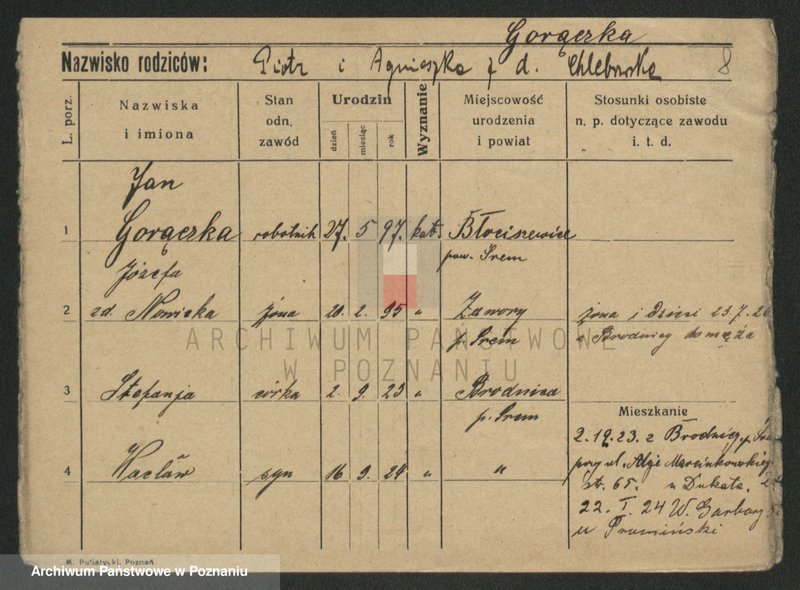 Gorączka
Nazwisko rodziców: Piotr i Agnieszka z d. Chlebowska 8
L. porz.
Nazwiska
i imiona
Stan
odn.
zawód
Urodzin
dzień
miesiąc
rok
Wyznanie
Miejscowość
urodzenia
i powiat
Stosunki osobiste
n. p. dotyczące zawodu
i. t. d.
Jan
1 Gorączka robotnik 27. 5 97. kat. Błociszewice
pow. Srem
Józefa
2 zd. Nowicka żona 20. 2. 95 " Zawory żona i dzieci 23.7.26
p. Śrem z Brodnicy do męża
ARCHIWUM PAŃSTWOWE
W POZNANIU
3 Stefanja córka 2. 9. 23 " Brodnica
p. Srem
Mieszkanie
2.19.23. z Brodnicy p.
przy ul. Alje Marcinkowskiego
4 Wacław syn 16 9. 24 " "
st. 65. u Dukata.
22. I. 24 W. Garbary
u
M. Putiatycki, Poznań
Archiwum Państwowe w Poznaniu